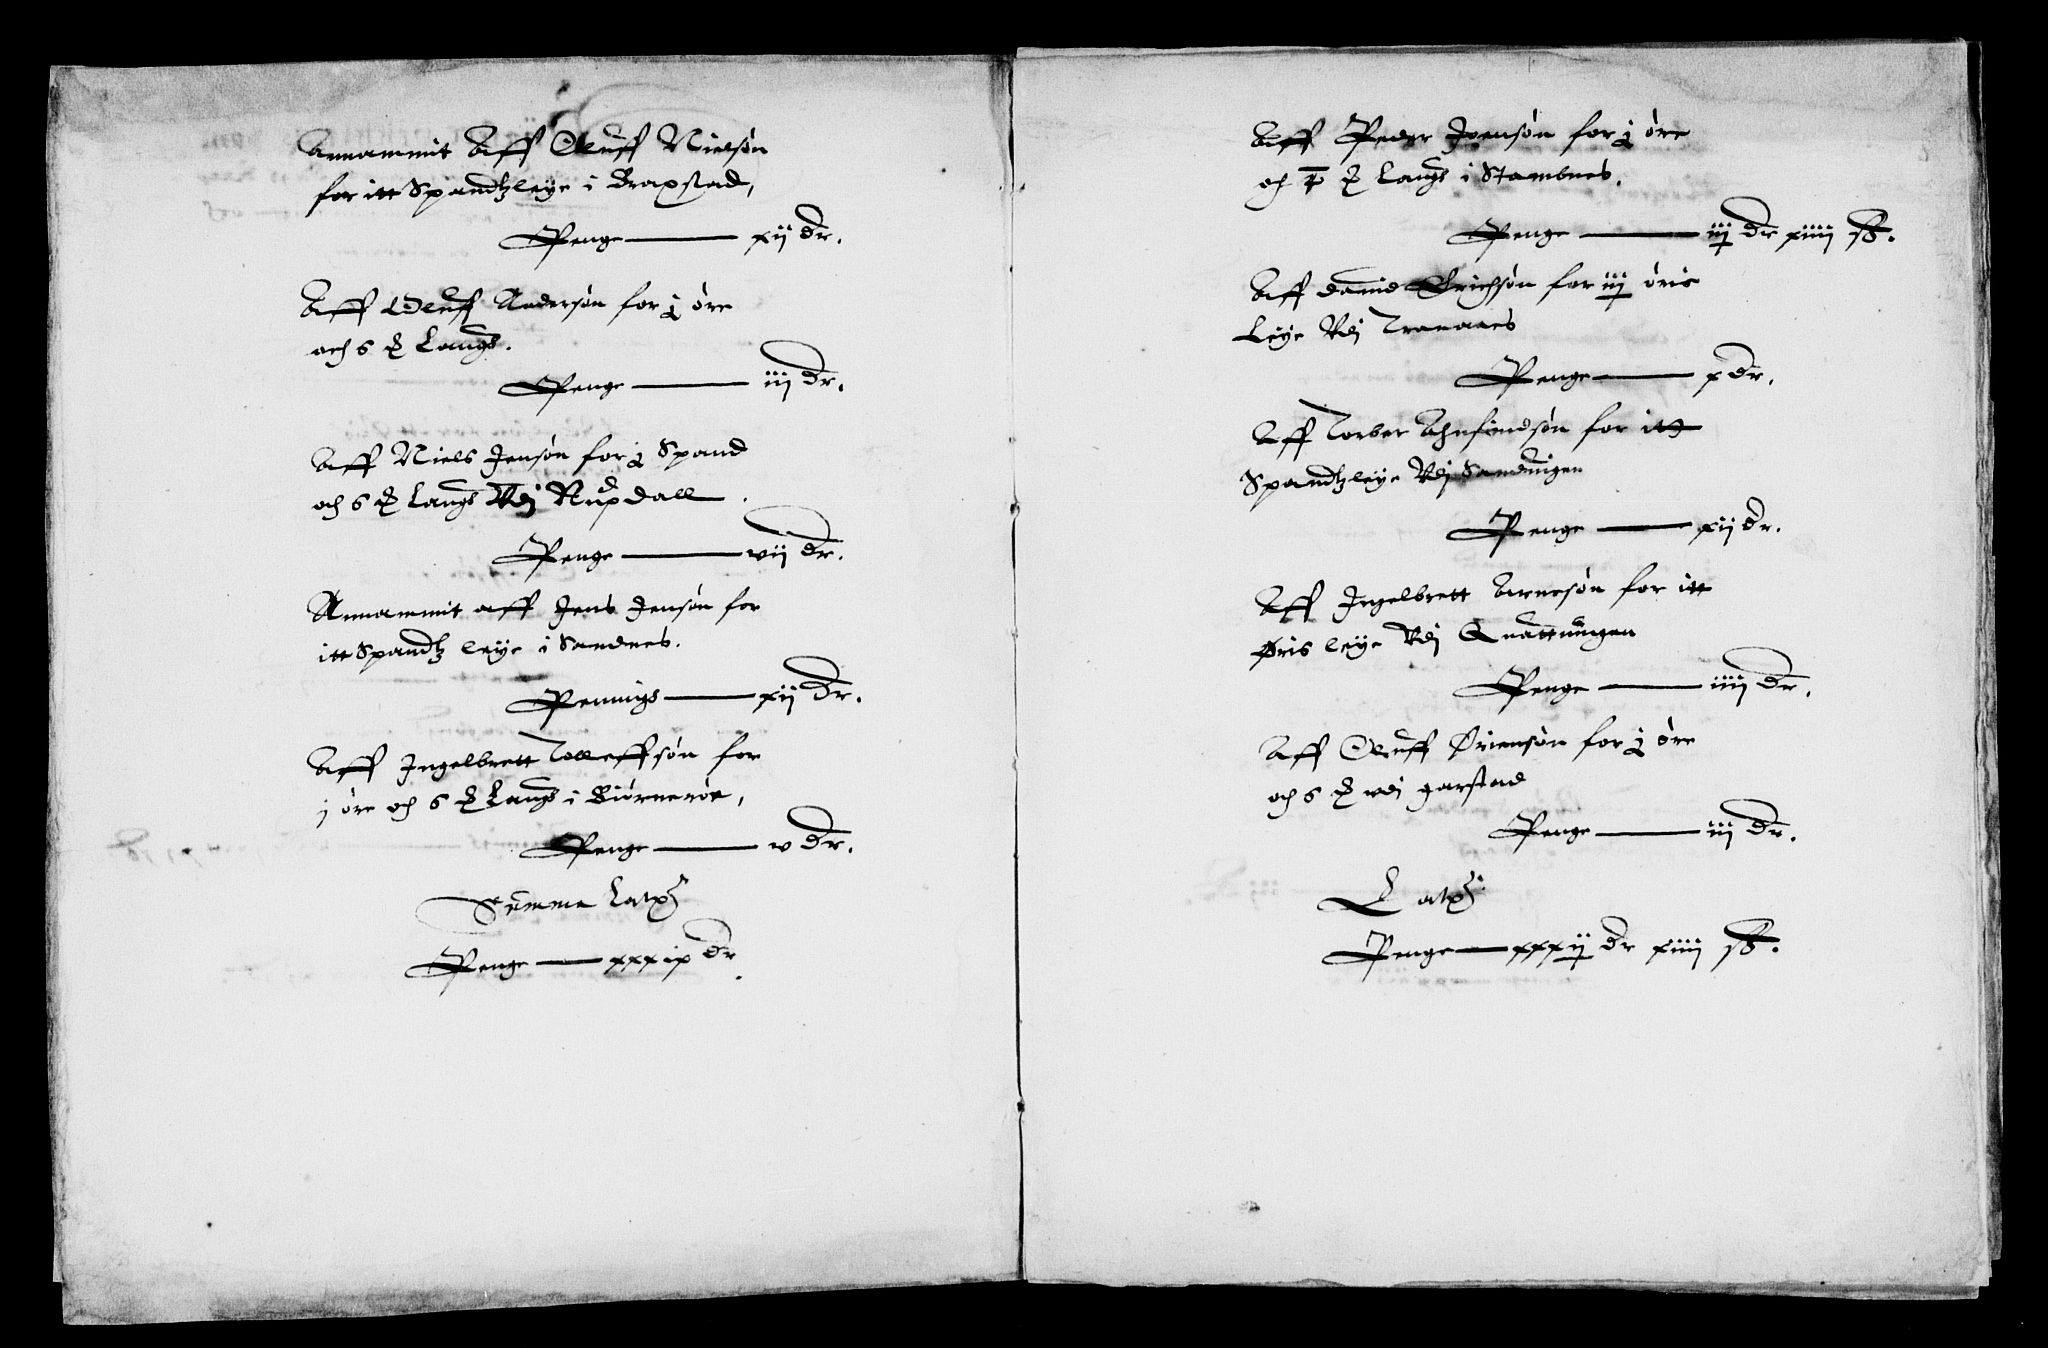 Annammit Aff Oluff Nielsøn
for itt Spandtzleye i Braxstad,
Penge —— xij dr.
Aff Oluff Andersøn for j øre
och 6 ₰ Langs.
Penge —— iij dr.
Aff Niels Jensøn for j Spand
och 6 ₰ Langs Vdj Rupdall.
Penge —— vij dr.
Annammit aff Jens Jensøn for
itt Spandtz leye i Sandnes.
Pennings —— xij dr.
Aff Ingelbrett Tolleffsøn for
j øre och 6 ₰ Langs i Biørnerøe,
Penge —— v dr.
Summa Lateris
Penge —— xxxix dr.
Aff Peder Joensøn for j øre
och ₰ Langs i Stambnes.
Penge —— iij dr xiiij sk.
Aff David Erichsøn for iij øris
Leye Vdj Tranaaes
Penge —— x dr.
Aff Torber Ahnfindsøn for itt
Spandtzleye Vdj Sanduigen
Penge —— xij dr.
Aff Ingelbrett Arnesøn for itt
Øris leye Vdj Quattningen
Penge —— iiij dr.
Aff Oluff Øriensøn for j øre
och 6 ₰ vdj garstad
Penge —— iij dr.
Lateris
Penge —— xxxij dr xiiij sk.